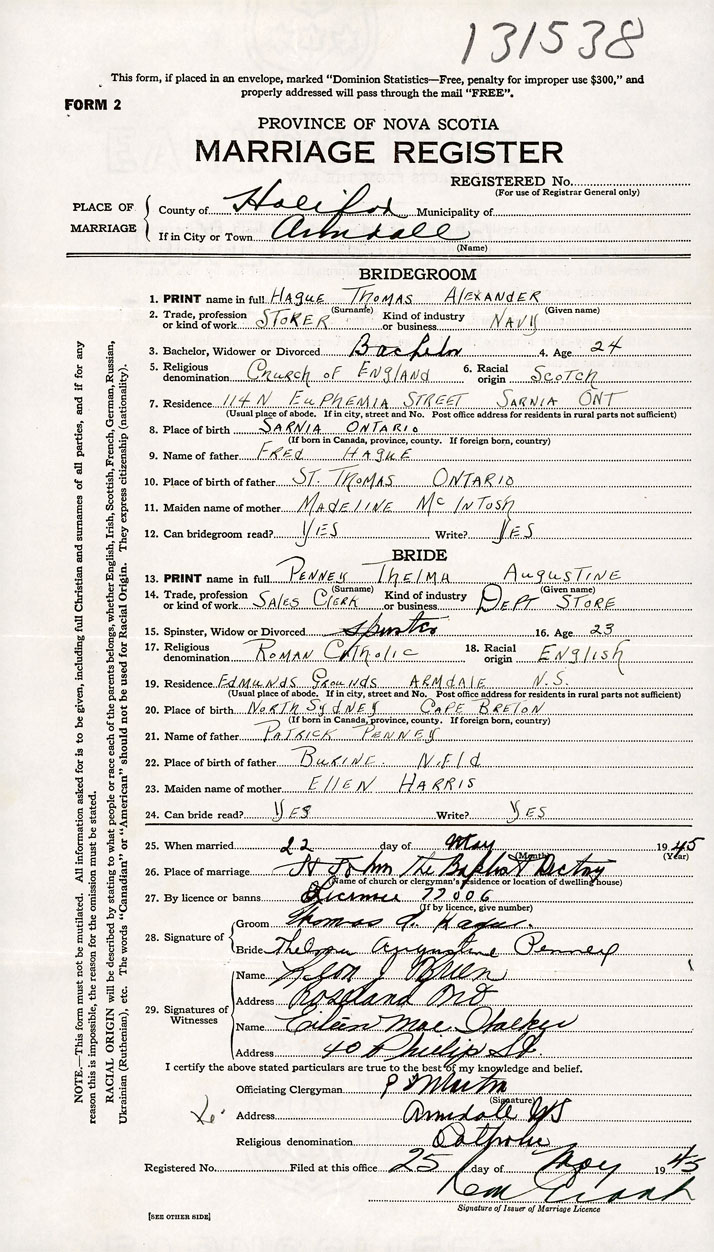 131538
This form, if placed in an envelope, marked "Dominion Statistics—Free, penalty for improper use $300," and
properly addressed will pass through the mail "FREE".
FORM 2
PROVINCE OF NOVA SCOTIA
MARRIAGE REGISTER
REGISTERED No.
(For use of Registrar General only)
PLACE OF MARRIAGE
County of Halifax Municipality of
If in City or Town Armdale
(Name)
BRIDEGROOM
1. PRINT name in full HAGUE THOMAS ALEXANDER
(Surname) (Given name)
2. Trade, profession or kind of work STOKER Kind of industry or business NAVY
3. Bachelor, Widower or Divorced Bachelor 4. Age 24
5. Religious denomination CHURCH OF ENGLAND 6. Racial origin SCOTCH
7. Residence 114 N EUPHEMIA STREET SARNIA ONT
(Usual place of abode. If in city, street and No. Post office address for residents in rural parts not sufficient)
8. Place of birth SARNIA ONTARIO
(If born in Canada, province, county. If foreign born, country)
9. Name of father FRED HAGUE
10. Place of birth of father ST. THOMAS ONTARIO
11. Maiden name of mother MADELINE McINTOSH
12. Can bridegroom read? YES Write? YES
BRIDE
13. PRINT name in full PENNEY THELMA AUGUSTINE
(Surname) (Given name)
14. Trade, profession or kind of work SALES CLERK Kind of industry or business DEPT STORE
15. Spinster, Widow or Divorced Spinster 16. Age 23
17. Religious denomination ROMAN CATHOLIC 18. Racial origin ENGLISH
19. Residence EDMUNDS GROUNDS ARMDALE N.S.
(Usual place of abode. If in city, street and No. Post office address for residents in rural parts not sufficient)
20. Place of birth NORTH SYDNEY CAPE BRETON
(If born in Canada, province, county. If foreign born, country)
21. Name of father PATRICK PENNEY
22. Place of birth of father BURINE. N.F.l.d
23. Maiden name of mother ELLEN HARRIS
24. Can bride read? YES Write? YES
25. When married 22 day of May 1945
(Month) (Year)
26. Place of marriage St John The Baptist Rectory
(Name of church or clergyman's residence or location of dwelling house)
27. By licence or banns License 77006
(If by licence, give number)
28. Signature of
Groom Thomas A. Hague.
Bride Thelma Augustine Penney
29. Signatures of Witnesses
Name J O'Brien
Address
Name Eileen Mae Walker
Address 40 Philip St.
I certify the above stated particulars are true to the best of my knowledge and belief.
Officiating Clergyman P Martin
(Signature)
Address Armdale NS
Religious denomination Catholic
Registered No. Filed at this office 25 day of May 1945
Grant
Signature of Issuer of Marriage Licence
[SEE OTHER SIDE]
NOTE.—This form must not be mutilated. All information asked for is to be given, including full Christian and surnames of all parties, and if for any
reason this is impossible, the reason for the omission must be stated.
RACIAL ORIGIN will be described by stating to what people or race each of the parents belongs, whether English, Irish, Scottish, French, German, Russian,
Ukrainian (Ruthenian), etc. The words "Canadian" or "American" should not be used for Racial Origin. They express citizenship (nationality).